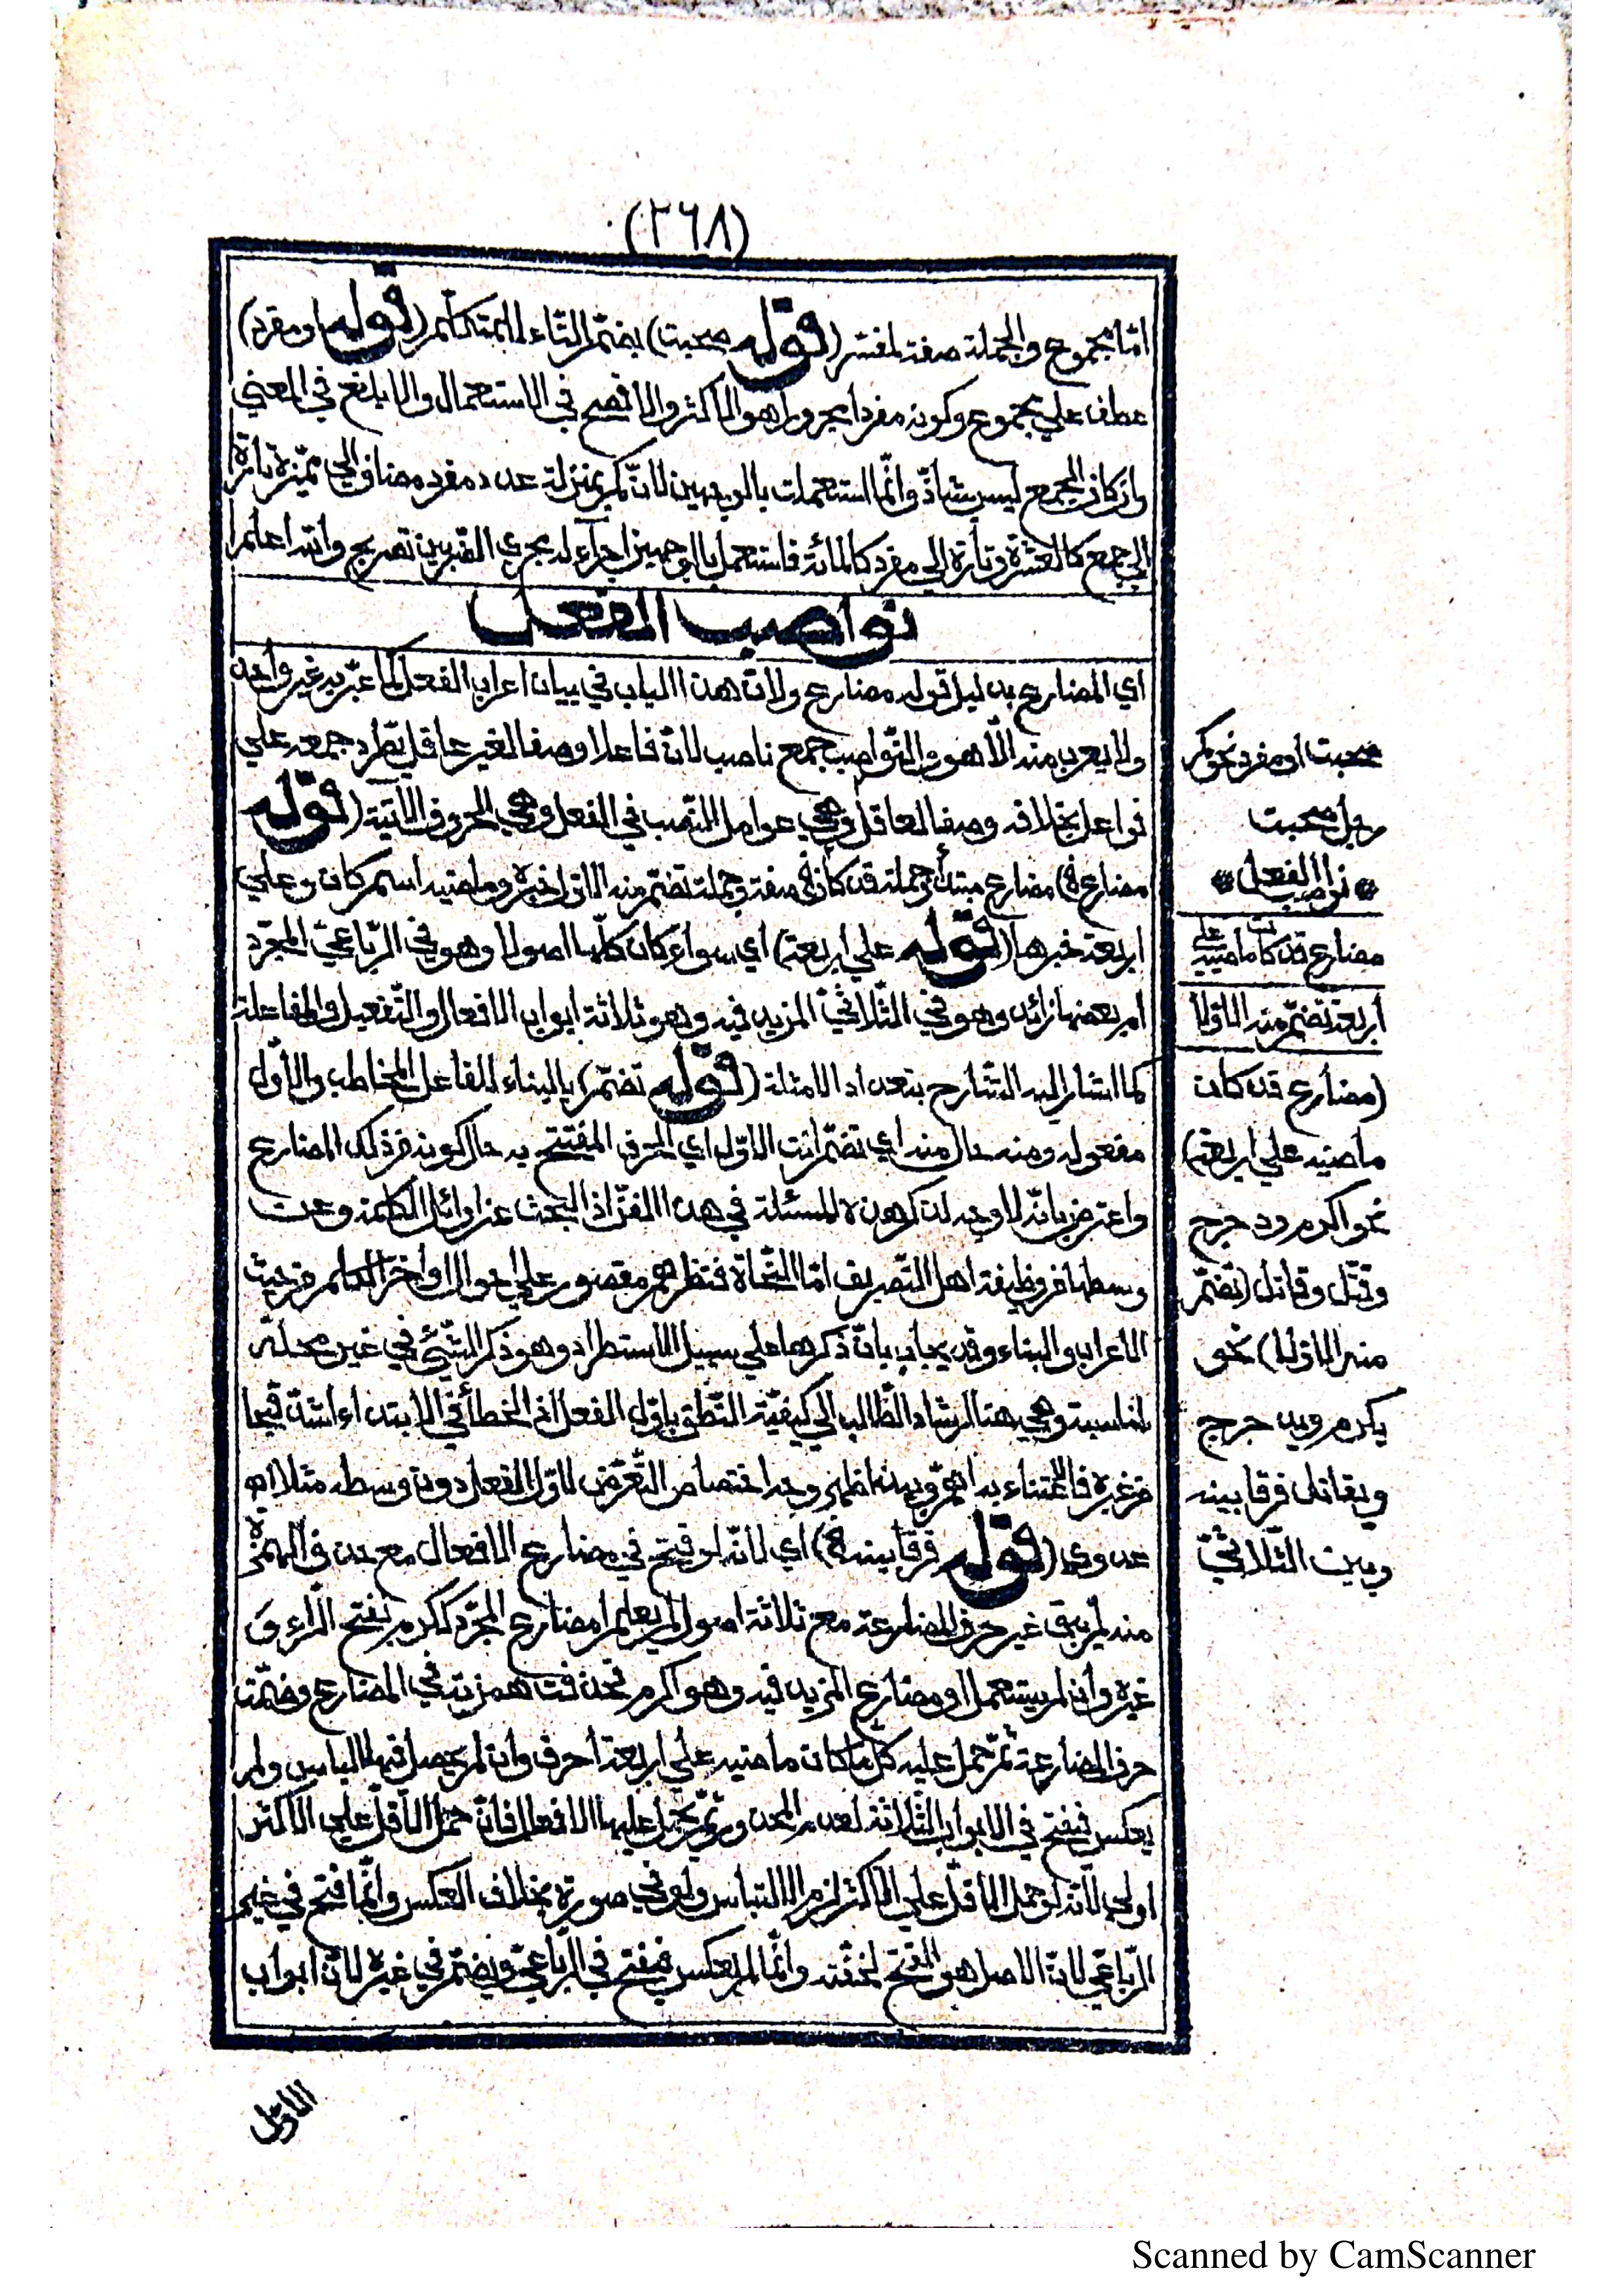 (٢٦٨)
امّا مجموع والجملة صفة لمفسّر (قوله صحبت) بضمّ التّاء للمتكلّم (قوله او مفرد)
عطف علي مجموع وكونه مفردا مجرورا هو الاكثر والافصح في الاستعمال والابلغ في المعني
وان كان الجمع ليس بشاذّ وانّما استعملت بالوجهين لانّ كم بمنزلة عدد مفرد مضاف الي مميّزه تارة
الي جمع كالعشرة وتارة الي مفرد كالمائة فاستعمل بالوجهين اجراء له مجري الضّربين تصريح والله اعلم
نواصب الفعل
اي المضارع بدليل قوله مضارع ولانّ هذا الباب في بيان اعراب الفعل كما عبّر به غير واحد
ولا يعرب منه الّا هو والنّواصب جمع ناصب لانّ فاعلا وصفا لغير عاقل يطّرد جمعه علي
فواعل بخلافه وصفا لعاقل وهي عوامل النّصب في الفعل وهي الحروف الآتية (قوله
مضارع) مضارع مبتدأ وجملة قد كان صفة وجملة تضمّ منه الاوّل خبره وماضيه اسم كان وعلي
اربعة خبرها (قوله علي اربعة) اي سواء كان كلّها اصولا وهو في الرّباعيّ المجرّد
ام بعضها زائد وهو في الثّلاثيّ المزيد فيه وهو ثلاثة ابواب الافعال والتّفعيل والمفاعلة
كما اشار اليه الشّارح بتعداد الامثلة (قوله تضمّ) بالبناء للفاعل المخاطب والاوّل
مفعوله ومنه حال منه اي تضمّ انت الاوّل اي الحرف المفتتح به حال كونه من ذلك المضارع
واعترض بانّه لا وجه لذكر هذه المسئلة في هذا الفنّ اذ البحث عن اوائل الكلمة وعن
وسطها من وظيفة اهل التّصريف امّا النّحاة فنظرهم مقصور علي احوال اواخر الكلم من حيث
الاعراب والبناء وقد يجاب بانّ ذكرها علي سبيل الاستطراد وهو ذكر الشّيئ في غير محلّه
لمناسبة وهي هنا ارشاد الطّالب الي كيفيّة النّطق باوّل الفعل اذ الخطأ في الابتداء اشدّ قبحا
من غيره فالاعتناء به اهمّ وبهذا ظهر وجه اختصاص التّعرّض لاوّل الفعل دون وسطه مثلا اه
عدوي (قوله فرقا بينه) اي لانّه لو فتح في مضارع الافعال مع حذف الهمزة
منه لم يبق غير حرف المضارعة مع ثلاثة اصول لم يعلم امضارع المجرّد ككرم بفتح الرّاء و
غيره وان لم يستعمل او مضارع المزيد فيه وهو اكرم فحذفت همزته في المضارع وضمّت
حرف المضارعة ثمّ حمل عليه كلّ ما كان ماضيه علي اربعة احرف وان لم يحصل فيها الباس ولم
يعكس فيفتح في الابواب الثّلاثة لعدم الحذف ثمّ يحمل عليها الافعال فانّ حمل الاقلّ علي الاكثر
اولي لانّه لو حمل الاقلّ علي الاكثر لزم الالتباس ولو في صورة بخلاف العكس وانّما فتح في غير
الرّباعيّ لانّ الاصل هو الفتح لخفّته وانّما لم يعكس فيفتح في الرّباعيّ ويضمّ في غيره لانّ ابواب
الاوّل
صحبت أو مفرد نحو كم
رجل صحبت
نواصب الفعل
مضارع قد كان ماضيه علي
أربعة تضمّ منه الاوّلا
(مضارع قد كان
ماضيه علي اربعة)
نحو اكرم ودحرج
وقتّل وقاتل (تضمّ
منه الاوّلا) نحو
يكرم ويدحرج
ويقاتل فرقا بينه
وبين الثّلاثيّ
Scanned by CamScanner